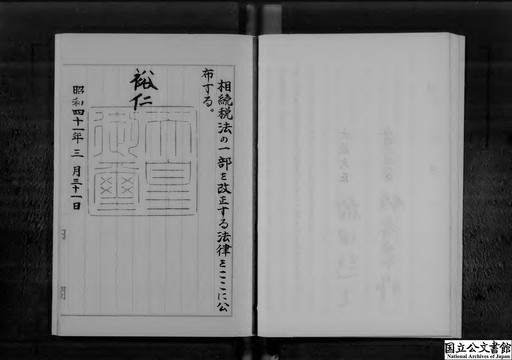 相続税法の一部を改正する法律をここに公
布する。
裕仁
天皇
御璽
昭和四十一年三月三十一日
国立公文書館
National Archives of Japan